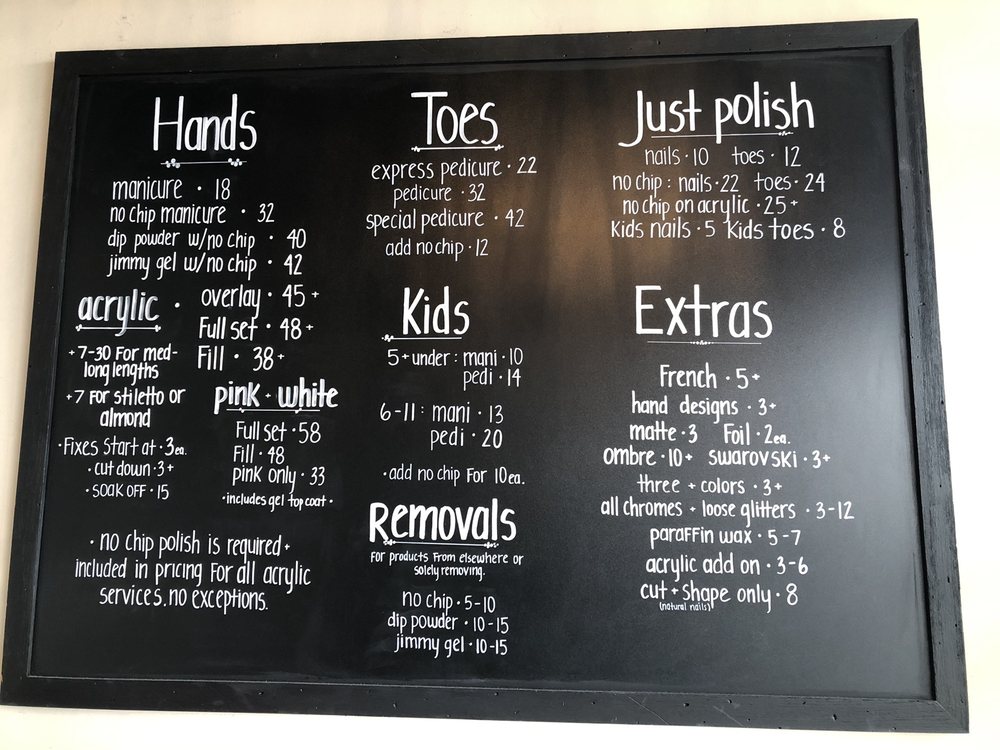 Hands
manicure · 18
no chip manicure · 32
dip powder w/no chip · 40
jimmy gel w/no chip · 42
acrylic · overlay · 45+
Full set · 48+
Fill · 38+
+7-30 For med-
long lengths
+7 For stiletto or
almond
·Fixes Start at·3ea.
·cut down·3+
·soak off·15
pink + white
Full set·58
Fill·48
pink only·33
·includes gel top coat·
·no chip polish is required+
included in pricing For all acrylic
services. no exceptions.
Toes
express pedicure · 22
pedicure · 32
special pedicure · 42
add no chip · 12
Kids
5+under: mani · 10
pedi · 14
6-11: mani · 13
pedi · 20
·add no chip For 10ea.
Removals
For products From elsewhere or
solely removing.
no chip · 5-10
dip powder · 10-15
jimmy gel · 10-15
Just polish
nails · 10 toes · 12
no chip: nails·22 toes·24
no chip on acrylic·25+
Kids nails·5 Kids toes·8
Extras
French · 5+
hand designs · 3+
matte·3 Foil·2ea.
ombre·10+ swarovski·3+
three + colors · 3+
all chromes + loose glitters · 3-12
paraffin wax · 5-7
acrylic add on · 3-6
cut + shape only · 8
(natural nails)